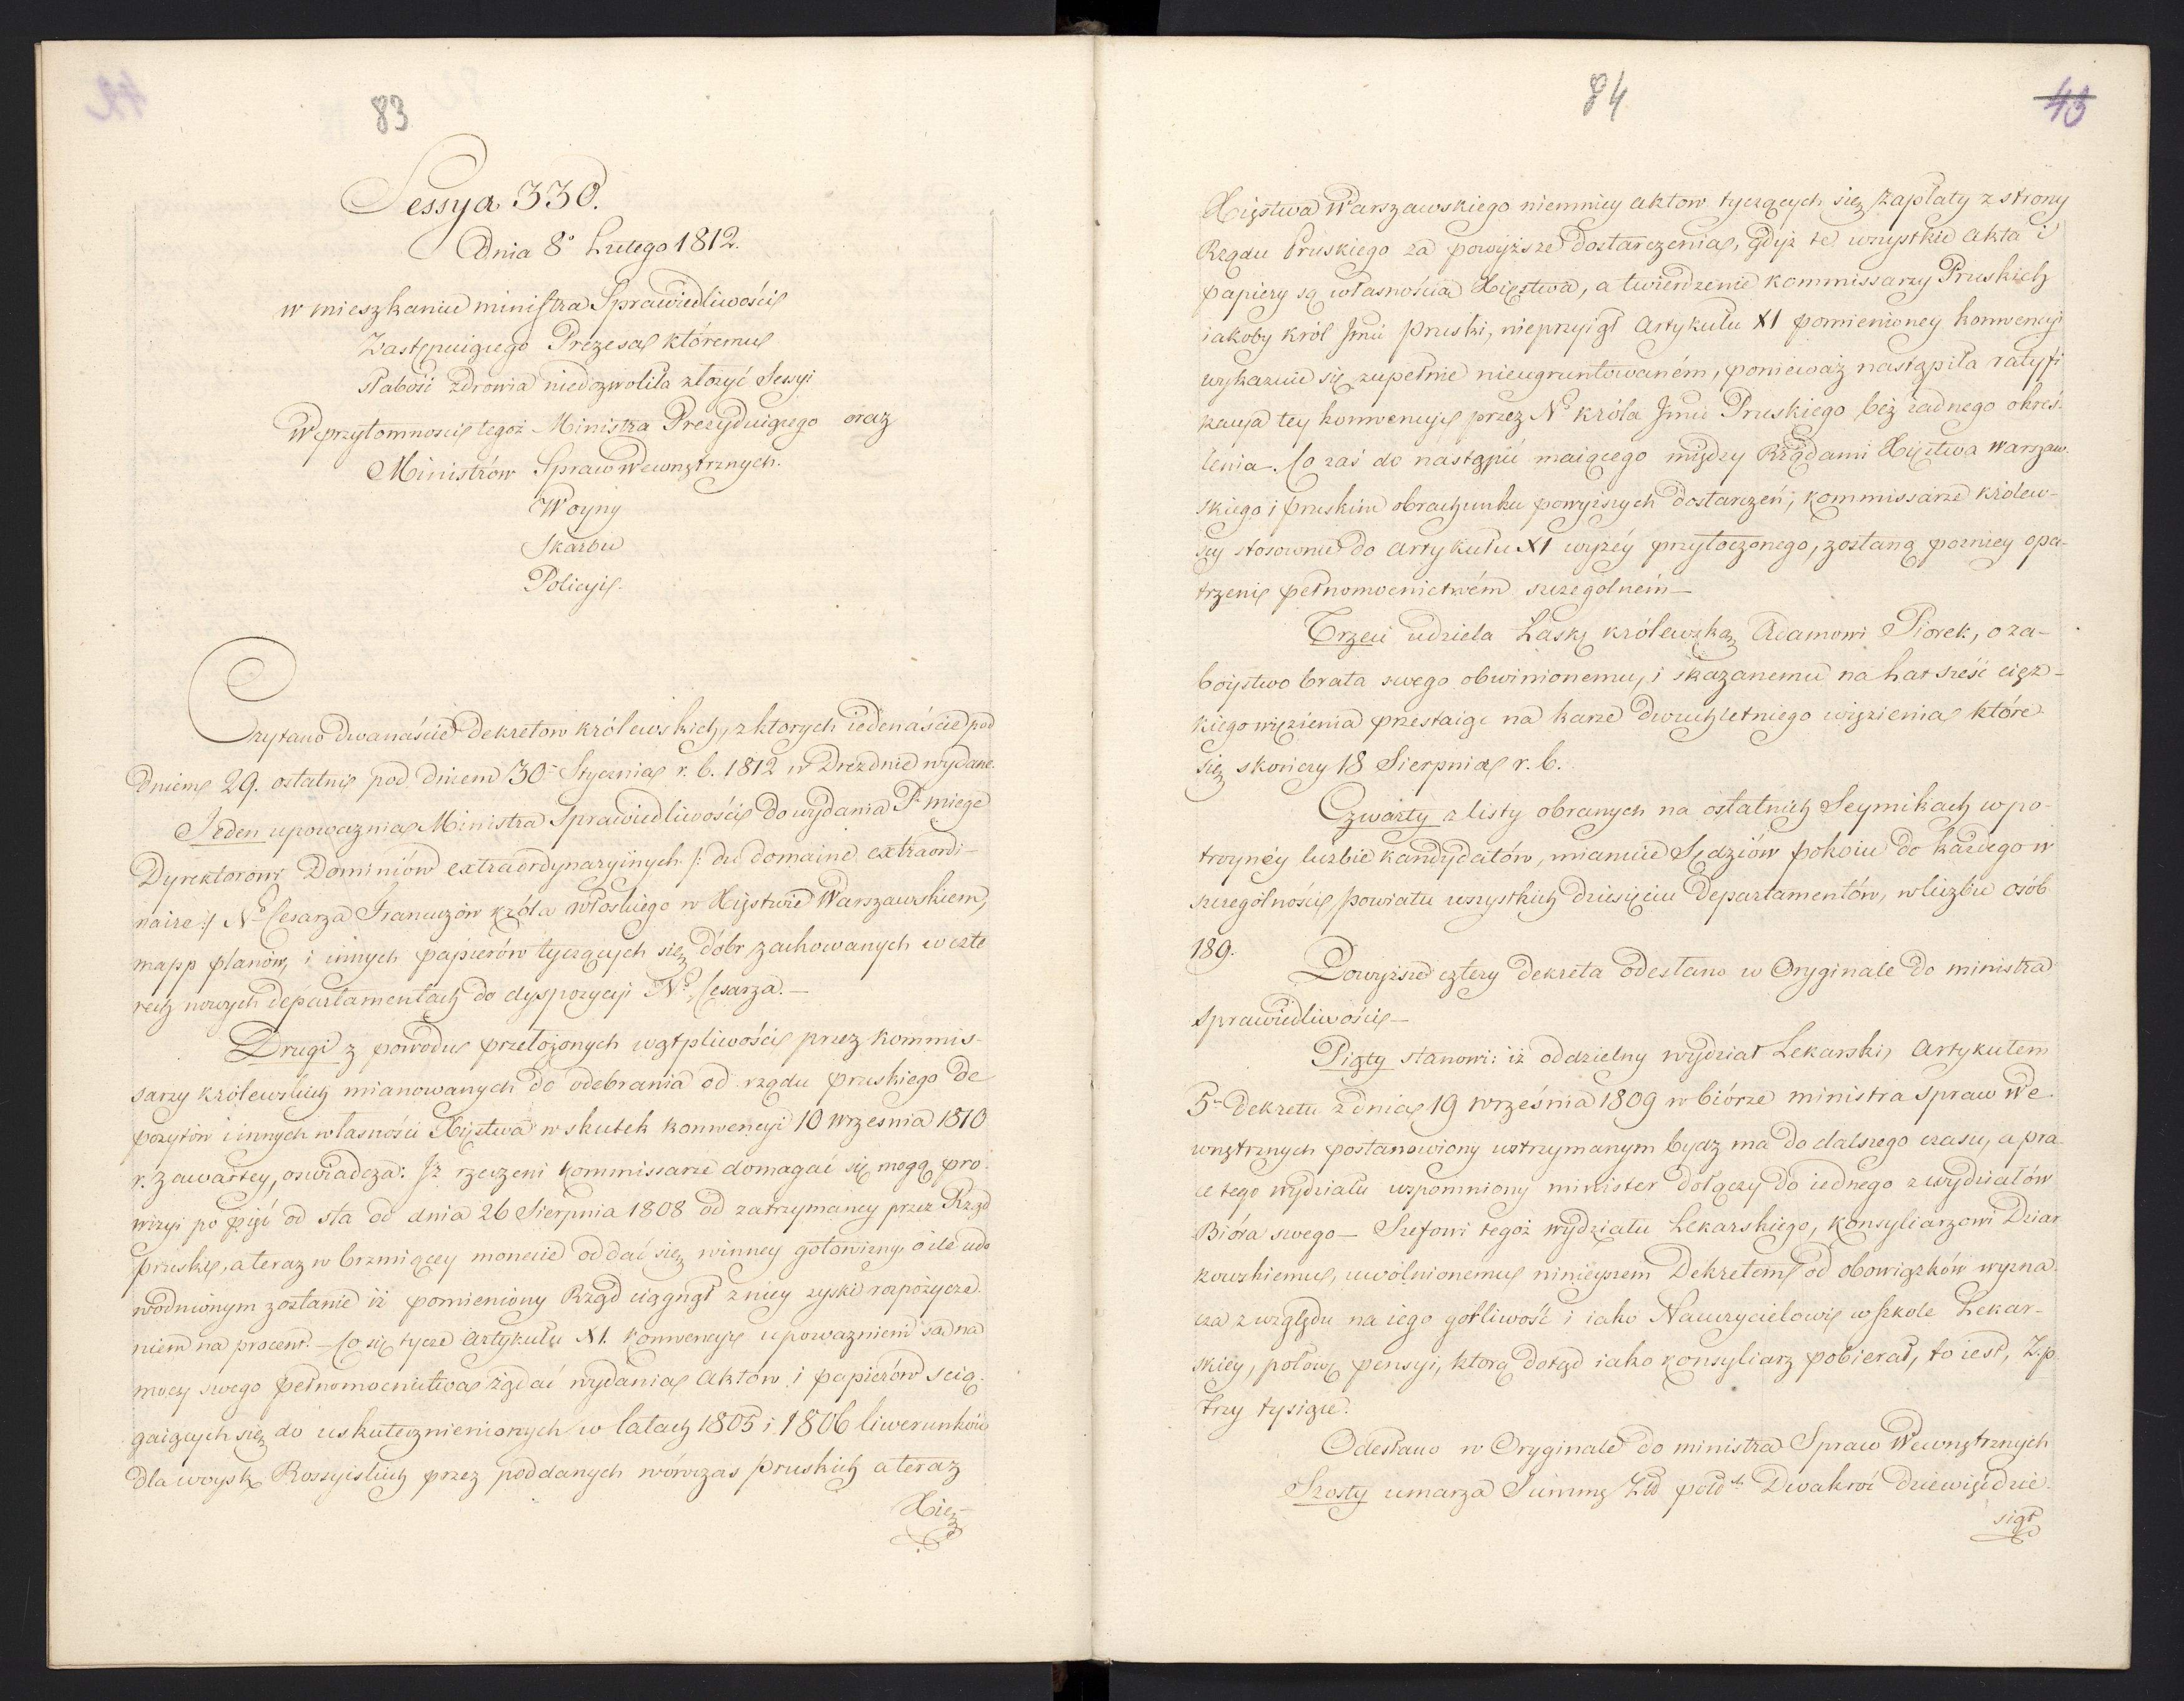 42
83
Sessya 330.
Dnia 8º Lutego 1812.
w mieszkaniu ministra Sprawiedliwości
Zastępuiącego Prezesa któremu
słabość zdrowia niedozwoliła złożyć Sessyi
W przytomności tegoż Ministra Prezyduiącego oraz
Ministrów Spraw Wewnętrznych.
Woyny
Skarbu
Policyi.
Czytano dwanaście Dekretow królewskich, z ktorych iedenaście pod
Dniem 29. ostatni pod dniem 30 Stycznia r. b. 1812 w Dreźdnie wydane.
Jeden upoważnia Ministra Sprawiedliwości do wydania Pº miege
Dyrektorowi Dominiów extraordynaryinych /: du domaine extraordi-
naire :/ Nº Cesarza Francuzów króla włoskiego w Xięstwie Warszawskiem,
mapp planów, i innych papierów tyczących się Dóbr zachowanych w czte
rech nowych Departamentach do dyspozycyi Nº Cesarza. —
Drugi z powodu przełożonych wątpliwości przez kommis-
sarzy królewskich mianowanych do odebrania od rządu pruskiego de
pozytów i innych własności Xięstwa w skutek konwencyi 10 Września 1810
r. zawartey, oświadcza: Jż rzeczeni kommissarze domagać się mogą pro
wizyi po pięć od sta od dnia 26 Sierpnia 1808 od zatrzymaney przez Rząd
pruski, a teraz w brzmiącey monecie oddać się winney gotowizny, o ile udo
wodnionym zostanie iż pomieniony Rząd ciągnął z niey zyski rozpożycze
niem na procent. — Co się tycze artykułu XI. Konwencyi upoważnieni są na
mocy swego pełnomocnictwa żądać wydania Aktow i papierów ścią
gaiących się do uskutecznienionych w latach 1805 i 1806 liwerunków
dla woysk Rossyiskich przez poddanych wówczas Pruskich a teraz
Xię-
84
43
Xięstwa Warszawskiego niemniey aktow tyczących się zapłaty z strony
Rządu Pruskiego za powyższe dostarczenia, gdyż te wszystkie akta i
papiery są własnością Xięstwa, a twierdzenie kommissarzy Pruskich
iakoby król Jmć pruski, nieprzyiął Artykułu XI pomienioney konwencyi
wykazuie się zupełnie nieugruntowaném, ponieważ nastąpiła ratyfi
kacya tey konwencyi przez Nº króla Jmci Pruskiego beż żadnego okreś-
lenia. Co zaś do nastąpić maiącego między Rządami Xięztwa Warszaw-
skiego i pruskim obrachunku powyższych Dostarczeń, kommissarze królew-
scy stosownie do artykułu XI wyżéy przytoczonego, zostaną pozniey opa-
trzeni pełnomocnictwém szczególném —
Trzeci udziela Łaskę królewską Adamowi Piorek, o za-
boystwo brata swego obwinionemu, i skazanemu na lat sześć cięż-
kiego więzienia przestaiąc na karze dwuchletniego więzienia które
się skończy 18 Sierpnia r. b.
Czwarty z listy obranych na ostatnich Seymikach w po-
troynéy liczbie kandydatów, mianuie Sędziów pokoiu do każdego w
szczególności powiatu wszystkich dziesięciu Departamentów, w liczbie osób
189.
Powyższe cztery Dekreta odesłano w Oryginale do ministra
Sprawiedliwości —
Piąty stanowi: iż oddzielny wydział Lekarski, Artykułem
5 Dekretu z dnia 19 września 1809 w biórze ministra spraw We
wnętrznych postanowiony wstrzymanym bydz ma do dalszego czasu, a pra
ce tego wydziału wspomniony minister dołączy do iednego z wydziałów
Bióra swego — Szefowi tegoż wydziału Lekarskiego, konsyliarzowi Dziar
kowskiemu, uwolnionemu ninieyszem Dekretem od obowiązków wyzna
cza z względu na iego gorliwość i iako Nauczycielowi w szkole Lekar-
skiéy, połowę pensyi, którą dotąd iako konsyliarz pobierał, to iest, Z.p.
trzy tysiące.
Odesłano w Oryginale do ministra Spraw Wewnętrznych
Szósty umarza Summę Zło pols Dwakroć dziewięćdzie
siąt